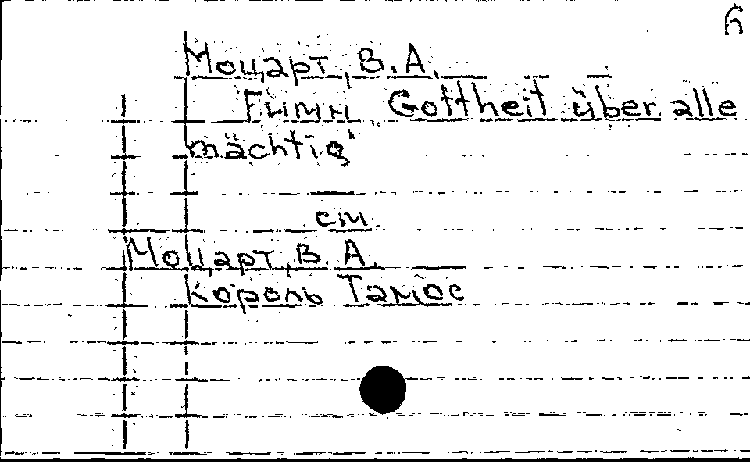 б
Моцарт, В.А.
Гимн "Gottheit über alle
mächtig"
см
Моцарт, В. А.
Король Тамос